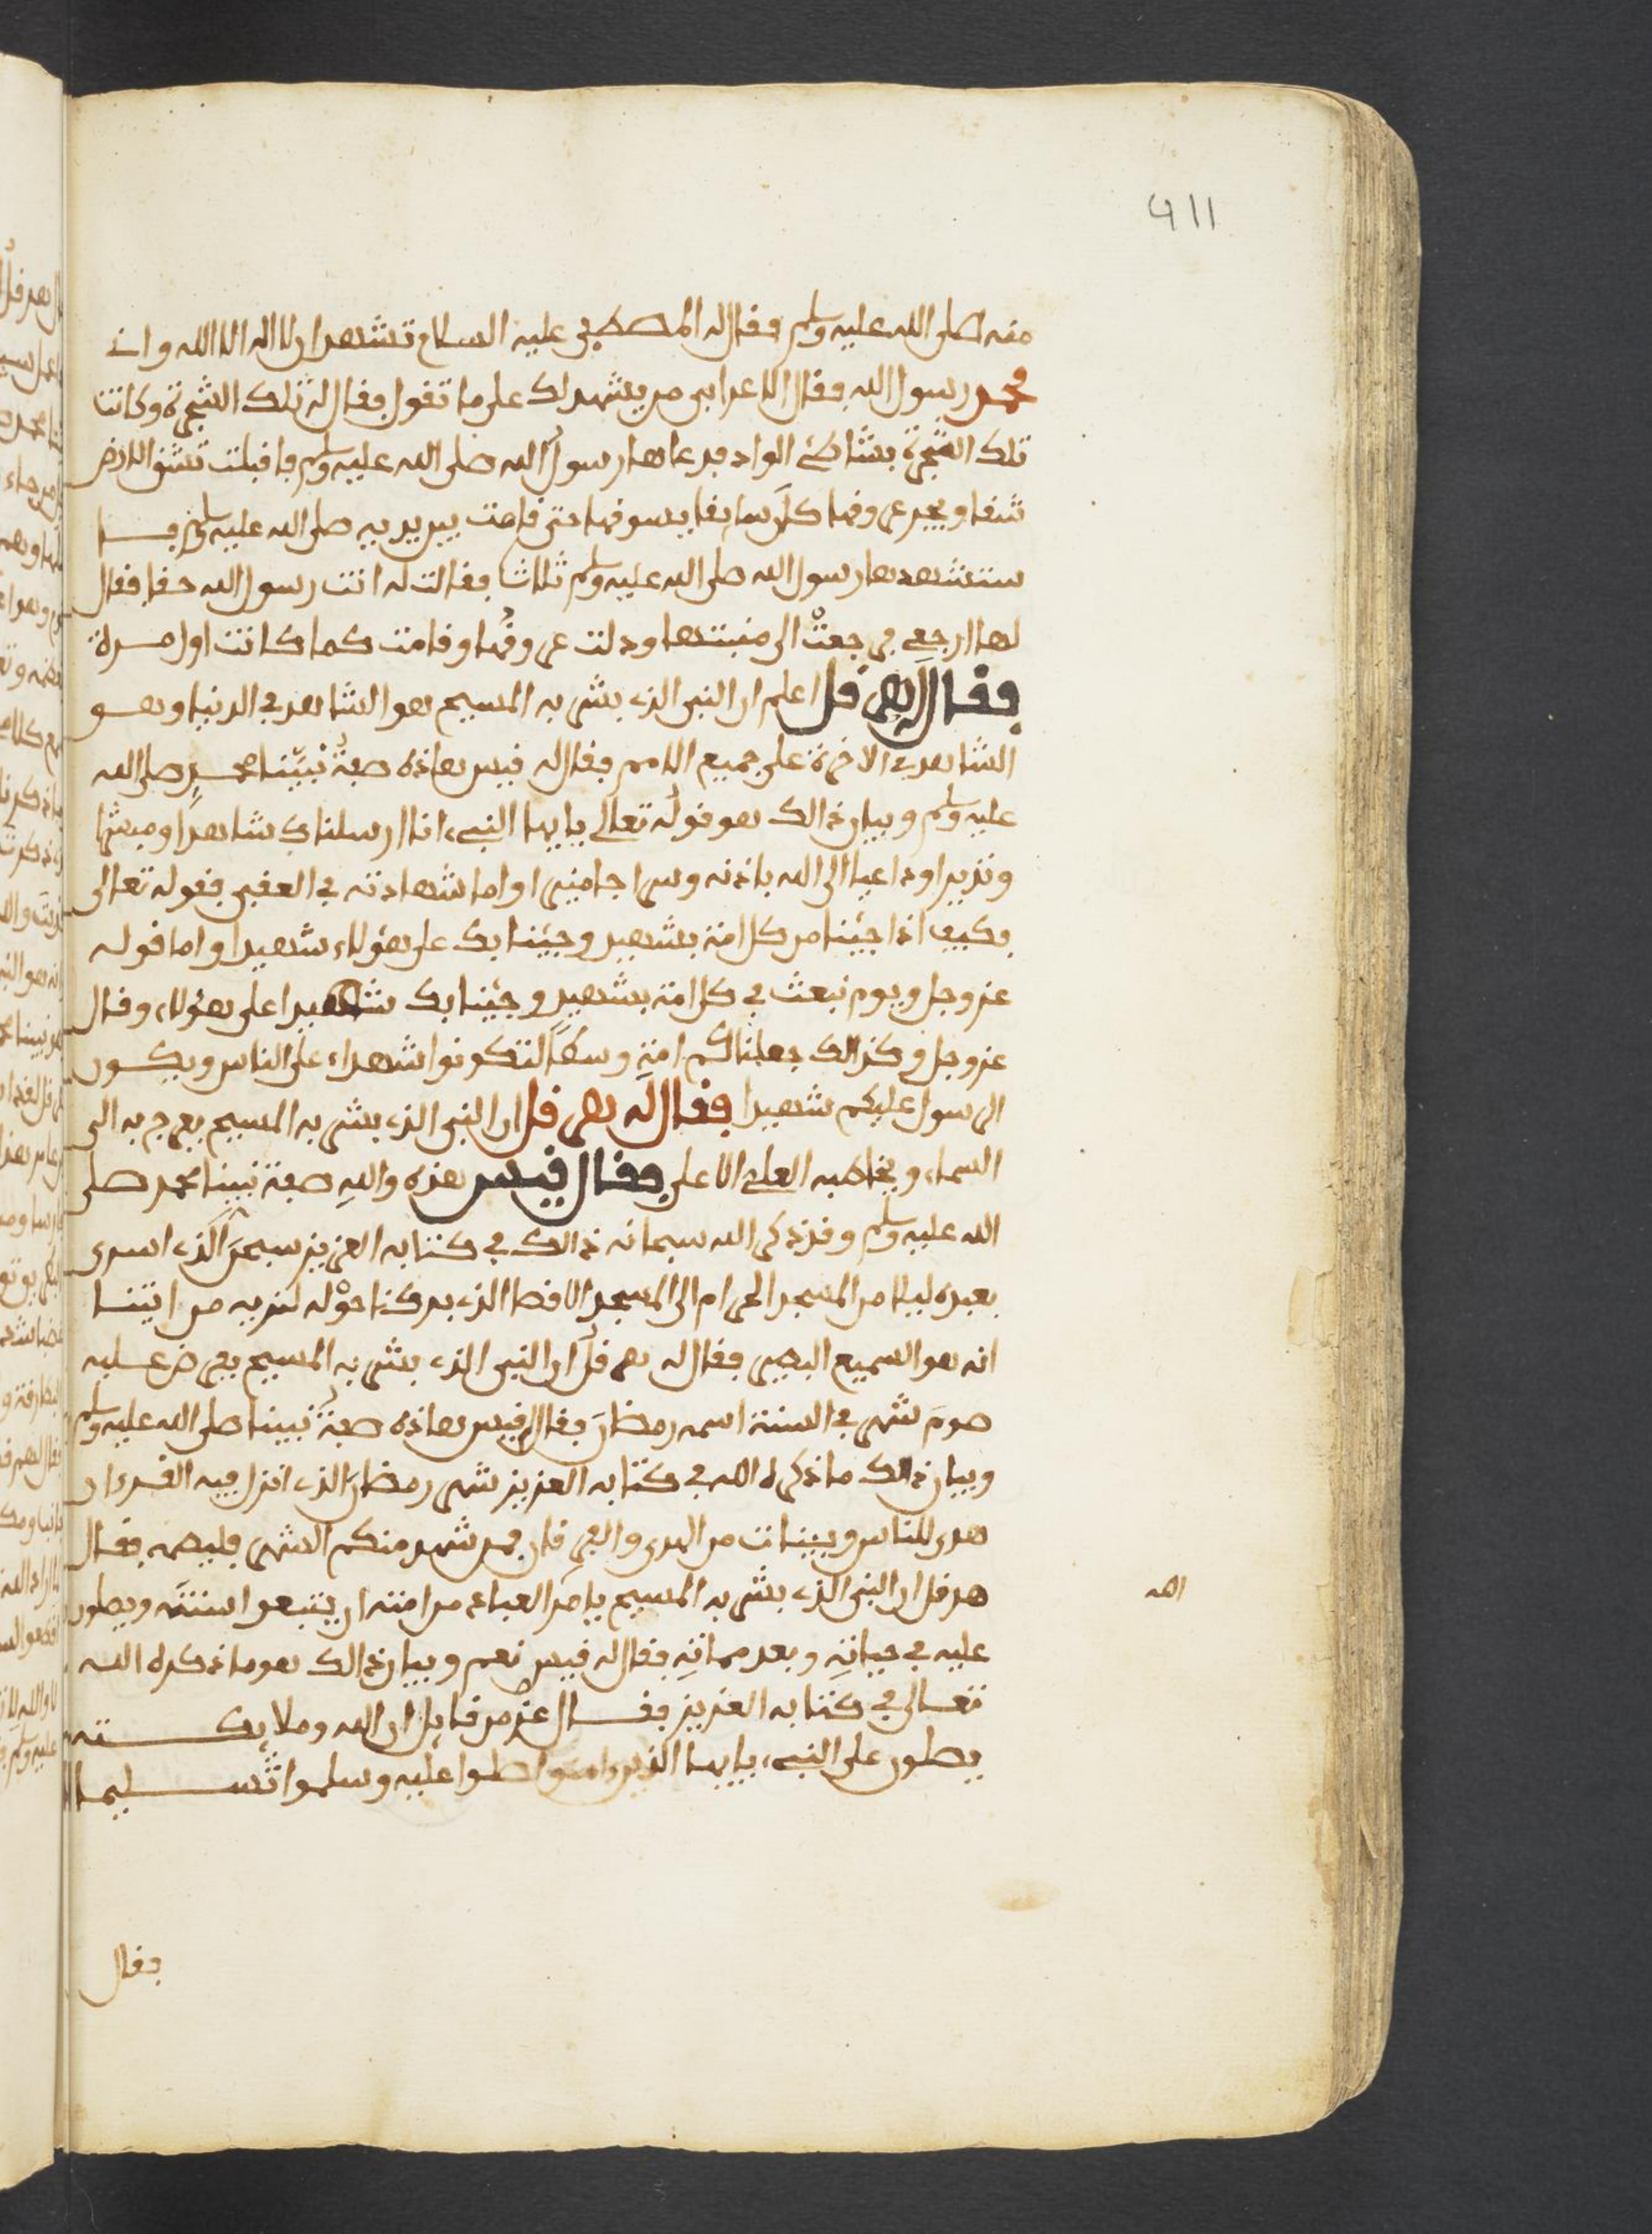 911
منه صلى الله عليه وسلم فقال له المصطفى عليه السلام تشهد ان لا اله الا الله وان
محمد رسول الله فقال الاعرابي من يشهد لك على ما تقول فقال له تلك الشجرة وكانت
تلك الشجرة بشاطئ الواد فدعاها رسول الله صلى الله عليه وسلم فاقبلت تشق الارض
شقا وتجر عروقها كأن سايقا يسوقها حتى قامت بين يديه صلى الله عليه وسلم فا
ستشهدها رسول الله صلى الله عليه وسلم ثلاثا فقالت له انت رسول الله حقا فقال
لها ارجعي فرجعت الى منبتها ودلت عروقها وقامت كما كانت اول مرة
فقال له هرقل اعلم ان النبي الذي بشر به المسيح هو الشاهد في الدنيا وهو
الشاهد في الاخرة على جميع الامم فقال له قيس هاذه صفة نبينا محمد صلى الله
عليه وسلم وبيان ذالك هو قوله تعالى يا ايها النبيء انا ارسلناك شاهدا ومبشرا
ونذيرا وداعيا الى الله باذنه وسراجا منيرا واما شهادته في العقبى فقوله تعالى
فكيف اذا جئنا من كل امة بشهيد وجئنا بك على هؤلاء شهيدا واما قوله
عز وجل ويوم نبعث في كل امة بشهيد وجئنا بك شهيدا على هؤلاء وقال
عز وجل وكذالك جعلناكم امة وسطا لتكونوا شهداء على الناس ويكون
الرسول عليكم شهيدا فقال له هرقل ان النبي الذي بشر به المسيح يعرج به الى
السماء ويخاطبه العلي الاعلى فقال قيس هذه والله صفة نبينا محمد صلى
الله عليه وسلم وقد ذكر الله سبحانه ذالك في كتابه العزيز سبحن الذي اسرى
بعبده ليلا من المسجد الحرام الى المسجد الاقصا الذي بركنا حوله لنريه من ايتنا
انه هو السميع البصير فقال له هرقل ان النبي الذي بشر به المسيح يفرض عليه
صوم شهر في السنة اسمه رمضان فقال له قيس هاذه صفة نبينا صلى الله عليه وسلم
وبيان ذالك ما ذكره الله في كتابه العزيز شهر رمضان الذي انزل فيه القرءان
هدى للناس وبينات من الهدى والفرقان فمن شهد منكم الشهر فليصمه فقال
هرقل ان النبي الذي بشر به المسيح يامر العباد من امته ان يتبعوا سنته ويصلون
الله
عليه في حياته وبعد مماته فقال له قيس نعم وبيان ذالك هو ما ذكره الله
تعالى في كتابه العزيز فقال عز من قايل ان الله وملايكته
يصلون على النبيء يا ايها الذين امنوا صلوا عليه وسلموا تسليما
فقال